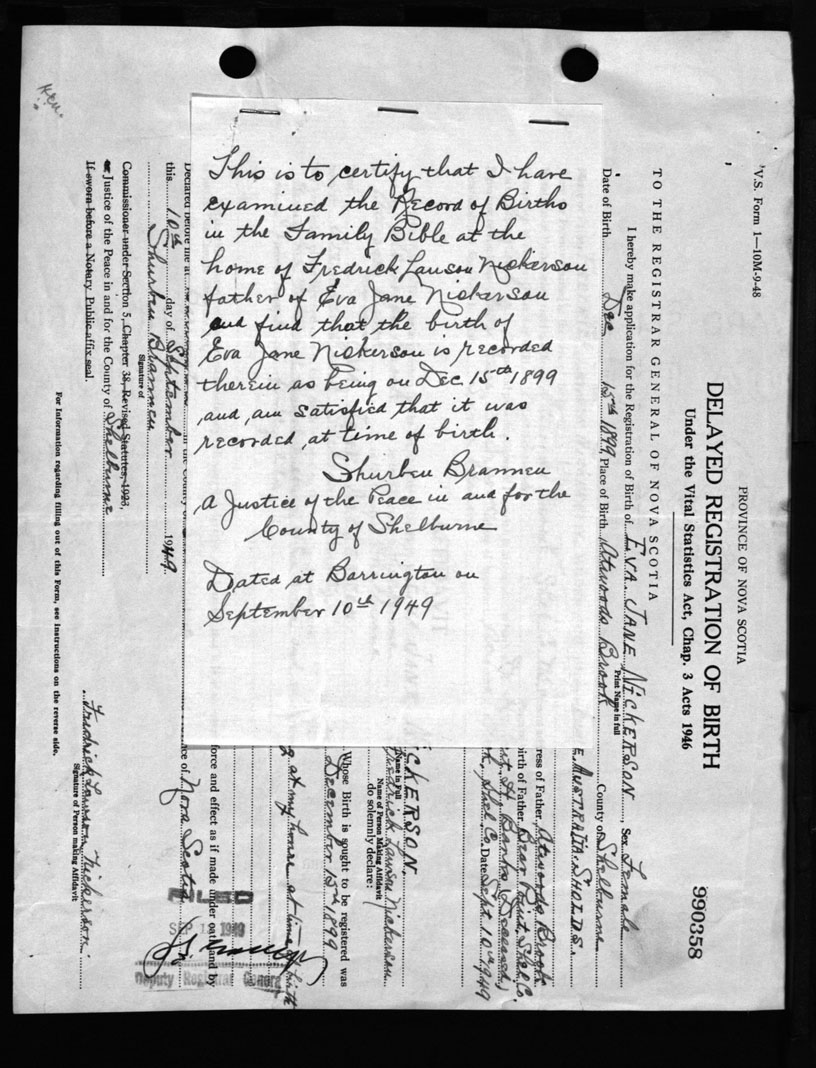 This is to certify that I have
examined the Record of Births
in the Family Bible at the
home of Fredrick Lauson Nickerson
father of Eva Jane Nickerson
and find that the birth of
Eva Jane Nickerson is recorded
therein as being on Dec. 15th 1899
and, am satisfied that it was
recorded, at time of birth.
Shurben Brannen
A Justice of the Peace in and for the
County of Shelburne
Dated at Barrington on
September 10th 1949
V.S. Form 1—10M-9-48
PROVINCE OF NOVA SCOTIA
DELAYED REGISTRATION OF BIRTH
Under the Vital Statistics Act, Chap. 3 Acts 1946
990358
TO THE REGISTRAR GENERAL OF NOVA SCOTIA
I hereby make application for the Registration of Birth of EVA JANE NICKERSON, Sex Female
Print Name in full
Date of Birth Dec 15th 1899, Place of Birth Atwoods Brook County of Shelburne
ress of Father Atwoods Brook
irth of Father Bear Point, Shel. Co.
Date Sept 10th 1949
CKERSON.
Name in Full
Fredrick Lauson Nickerson
Name of Person Making Affidavit
do solemnly declare:
Whose Birth is sought to be registered was
December 15th 1899
at my home at time of birth
force and effect as if made under oath and by
ce of Nova Scotia
Declared before me at
this 10th day of September 1949
Signature of
Shurben Brannen
Commissioner under Section 5, Chapter 38, Revised Statutes, 1923,
or Justice of the Peace in and for the County of Shelburne
If sworn before a Notary Public affix seal.
Fredrick Lauson Nickerson
Signature of Person making Affidavit
For Information regarding filling out of this Form, see Instructions on the reverse side.
FILED
SEP 1949
Deputy Registrar General